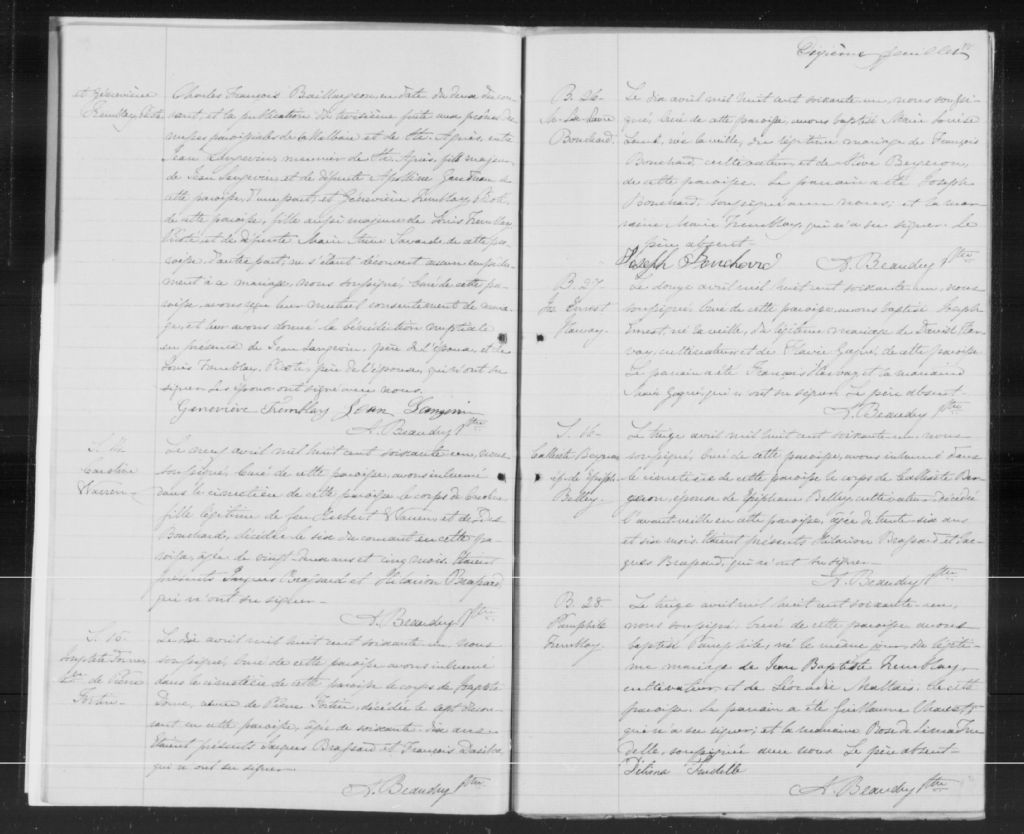 et Geneviève
Tremblay Picoté
Charles François Baillargeon en date du deux du cou-
rant, et la publication du troisième faite aux prônes des
messes paroissiales de la Malbaie et de Ste. Agnès, entre
Jean Langevin meunier de Ste. Agnès, fils majeur
de Jean Langevin et de défunte Apolline
cette paroisse d'une part; et Geneviève Tremblay Picoté
de cette paroisse, fille aussi majeure de Louis Tremblay
Picoté et de défunte Marie Anne Savard de cette pa-
roisse d'autre part, ne s'étant découvert aucun empêche-
ment à ce mariage, nous soussigné, Curé de cette pa-
roisse, avons leur mutuel consentement de maria-
ge, et leur avons donné la bénédiction nuptiale
en présence de Jean Langevin, père de l'époux, et de
Louis Tremblay Picoté, père de l'épouse, qui n'ont su
signer. Les époux ont signé avec nous.
Geneviève Tremblay Jean Langevin
A. Beaudry Ptre
S. 14
Caroline
Warren
Le neuf avril mil huit cent soixante-un, nous
soussigné, Curé de cette paroisse, avons inhumé
dans le cimetière de cette paroisse le corps de Caroline
fille légitime de feu Herbert Warren et de
Bouchard, décédée le six du courant en cette pa-
roisse, âgée de vingt-deux ans et cinq mois. Etaient
présents Jacques Brassard et Hilarion Brassard
qui n'ont su signer.
A. Beaudry Ptre
S. 15
de Pierre
Fortin
Le dix avril mil huit cent soixante-un nous
soussigné, Curé de cette paroisse avons inhumé
dans le cimetière de cette paroisse le corps de
veuve de Pierre Fortin, décédée le sept du cou-
rant en cette paroisse, âgée de soixante-dix ans
Etaient présents Jacques Brassard et François
qui n'ont su signer.
A. Beaudry Ptre
Dixième feuillet
B. 26
Bouchard.
Le dix avril mil huit cent soixante-un, nous soussi-
gné, Curé de cette paroisse, avons baptisé Marie Louise
née la veille, du légitime mariage de François
Bouchard cultivateur, et de Bergeron,
de cette paroisse. Le parrain a été Joseph
Bouchard soussigné avec nous; et la mar-
raine Marie Tremblay, qui n'a su signer. Le
père absent
Joseph Bouchard A. Beaudry Ptre
B. 27
Jos. Ernest
Le douze avril mil huit cent soixante-un, nous
soussigné, Curé de cette paroisse, avons baptisé Joseph
Ernest né la veille, du légitime mariage de
cultivateur et de Flavie Gagné, de cette paroisse
Le parrain a été François et la marraine
Gagné, qui n'ont su signer. Le père absent.
A. Beaudry Ptre
S. 16
Calliste Bergeron
ép. de
Belley
Le treize avril mil huit cent soixante-un, nous
soussigné, Curé de cette paroisse, avons inhumé dans
le cimetière de cette paroisse le corps de Calliste Ber-
geron, épouse de Belley, cultivateur, décédée
l'avant-veille en cette paroisse, âgée de trente-six ans
et six mois. Etaient présents Hilarion Brassard et Jac-
ques Brassard, qui n'ont su signer.
A. Beaudry Ptre
B. 28.
Pamphile
Tremblay.
Le treize avril mil huit cent soixante-un,
nous soussigné, Curé de cette paroisse avons
baptisé Pamphile, né le même jour, du légiti-
me mariage de Jean Baptiste Tremblay,
cultivateur, et de Léocadie Maltais, de cette
paroisse. Le parrain a été Guillaume
qui n'a su signer; et la marraine Rose de Lima Tru-
delle, soussignée avec nous. Le père absent.
Délima Trudelle
A. Beaudry Ptre